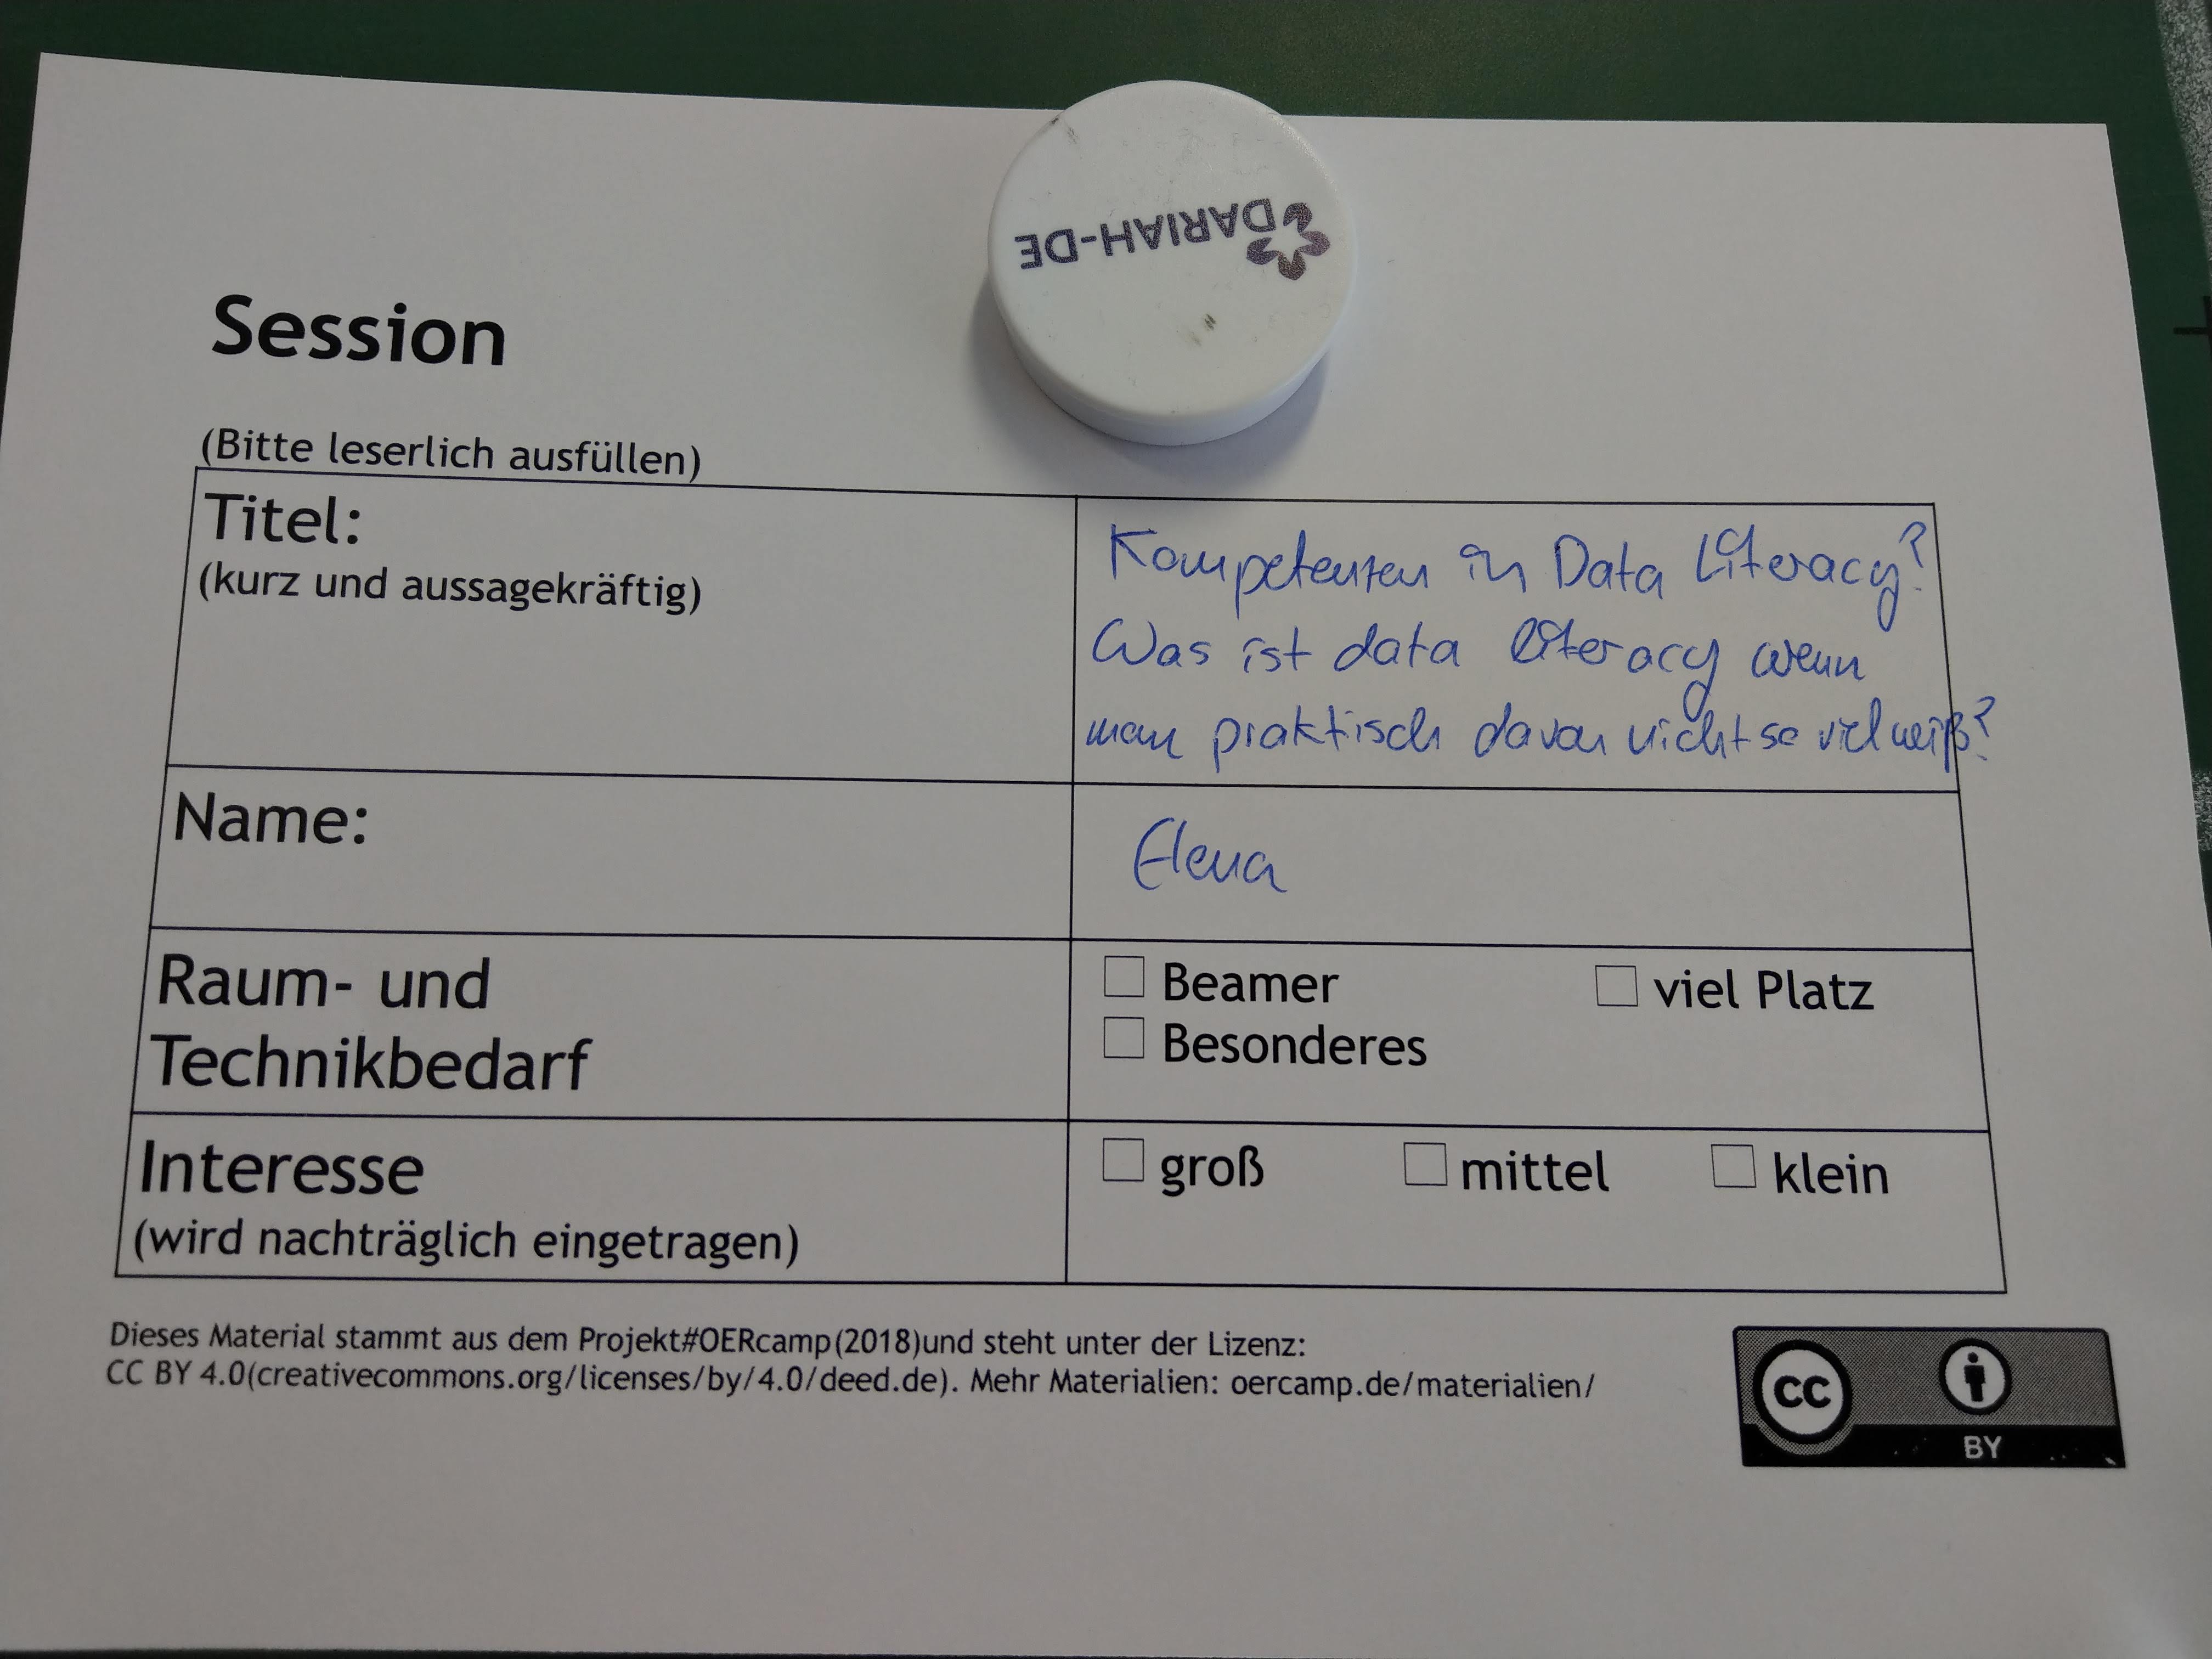 DARIAH-DE
Session
(Bitte leserlich ausfüllen)
Titel:
(kurz und aussagekräftig)
Kompetenzen in Data Literacy?
Was ist data literacy wenn
man praktisch davon nicht so viel weiß?
Name:
Elena
Raum- und
Technikbedarf
Beamer
viel Platz
Besonderes
Interesse
(wird nachträglich eingetragen)
groß
mittel
klein
Dieses Material stammt aus dem Projekt#OERcamp(2018)und steht unter der Lizenz:
CC BY 4.0(creativecommons.org/licenses/by/4.0/deed.de). Mehr Materialien: oercamp.de/materialien/
cc
BY